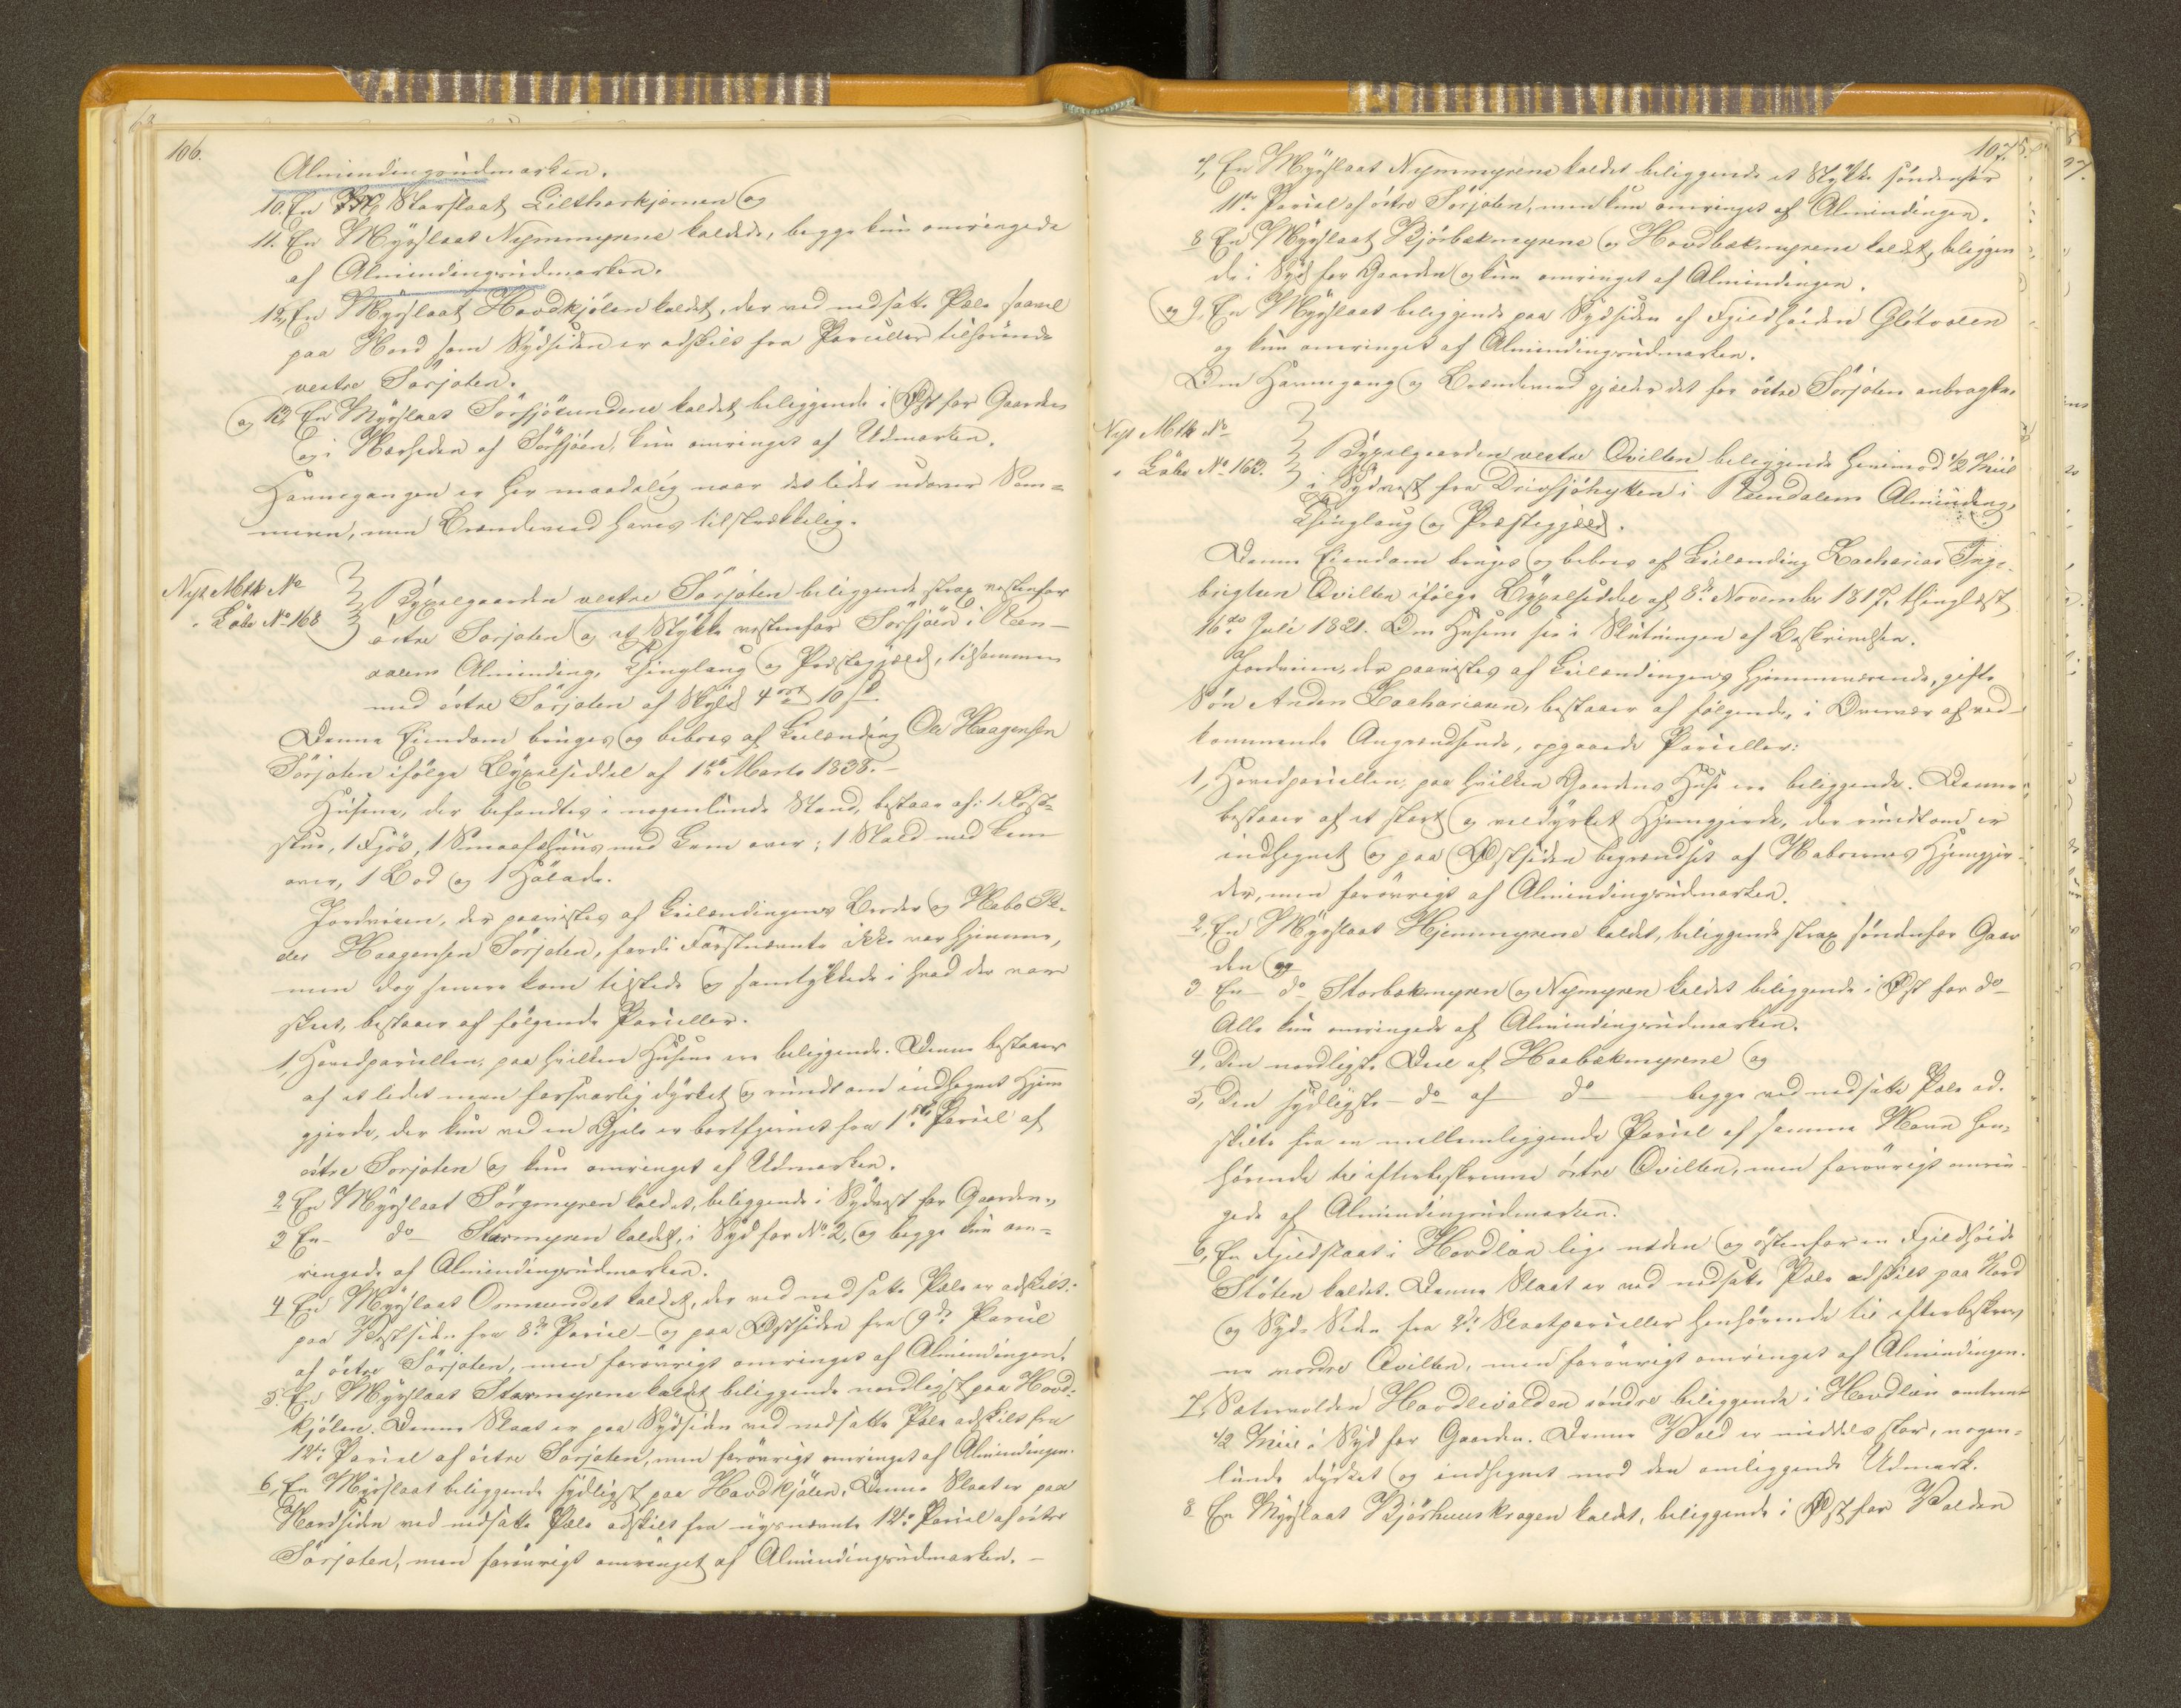 106.
Almindingsudmarken.
10. En Starslaat Litlharkjernen og
11. En Myrslaat Nymmyrene kaldede, begge kun omringede
af Almindingsudmarken.
12, En Myrslaat Hovdkjølen kaldet, der ved nedsatte Pæle saavel
paa Nord som Sydsiden er adskilt fra Parceller tilhørende
vestre Sörjoten.
og 13, En Myrslaat Sörsjösundene kaldet beliggende i Øst for Gaarden
og i Nærheden af Sörsjöen, kun omringet af Udmarken.
Havnegangen er her maadelig naar det lider udover Som-
meren, men Brændeved haves tilstrækkelig.
Nyt Mtk No
" Löbe No 168
Bygselgaarden vestre Sörjoten beliggende strax vestenfor
östre Sörjoten og et Stykke vestenfor Sörsjöen i Ren-
dalens Alminding, Thinglaug og Præstegjeld, tilsammen
med östre Sörjoten af Skyld 4 ort 10 ß.
Denne Eiendom bruges og beboes af Leilænding Ole Haagensen
Sörjoten ifölge Bygselseddel af 1ste Marts 1838.-
Husene, der befandtes i nogenlunde Stand, bestaar af: 1
stue, 1 Fjös, 1 Smaafæhuus med Lem over; 1 Stald med Lem
over, 1 Bod og 1 Hölade.
Jordveien, der paavistes af Leilændingens Broder og Nabo Pe-
der Haagensen Sörjoten, fordi Förstnævnte ikke var hjemme,
men dog senere kom tilstede og samtykkede i hvad der var
skeet, bestaaer af følgende Parceller.
1, Hovedparcellen, paa hvilken Husene ere beliggende. Denne bestaaer
af et lidet men forsvarlig dyrket og rundt om indhegnet Hjem
gjerde, der kun ved en Gjeil er bortfjernet fra 1ste Parcel af
östre Sörjoten og kun omringet af Udmarken.
2 En Myrslaat Sörgmyren kaldet, beliggende i Sydvest for Gaarden,
3 En do Starmyren kaldet, i Syd for No 2, og begge kun om-
ringede af Almindingsudmarken.
4 En Myrslaat Ormsundet kaldet, der ved nedsatte Pæle er adskilt
paa Vestsiden fra 8de Parcel og paa Østsiden fra 9de Parcel
af östre Sörjoten, men forövrigt omringet af Almindingen.
5. En Myrslaat Starmyrene kaldet beliggende nordligst paa Hovd-
kjölen. Denne Slaat er paa Sydsiden ved nedsatte Pæle adskilt fra
12te Parcel af östre Sörjoten, men forövrigt omringet af Almindingen.
6, En Myrslaat beliggende sydligst paa Hovdkjölen. Denne Slaat er paa
Nordsiden ved nedsatte Pæle adskilt fra nysnævnte 12te Parcel af östre
Sörjoten, men forövrigt omringet af Almindingsudmarken. -
107
7, En Myrslaat Nymmyrene kaldet beliggende et Stykke söndenfor
11te Parcel af östre Sörjoten, men kun omringet af Almindingen.
8 En Myrslaat Björbækmyrene og Hovdbækmyrene kaldet, beliggen
de i Syd for Gaarden og kun omringet af Almindingen.
og 9, En Myrslaat beliggende paa Sydsiden af Fjeldhöiden Gletvolen
og kun omringet af Almindingsudmarken.
Om Havnegang og Brændeved gjælder det for östre Sörjoten anbragte.
Nyt Mtk No
" Löbe No 163.
Bygselgaarden vestre Qvilten beliggende henimod 1/2 Miil
i Sydvest fra Drevsjöhytten i Rendalens Alminding,
Thinglaug og Præstegjæld.
Denne Eiendom bruges og beboes af Leilænding Zacharias Inge-
brigtsen Qvilten ifölge Bygselseddel af 8de November 1817, thinglæst
16de Juli 1821. Om Husene sees i Slutningen af Beskrivelsen.
Jordveien, der paavistes af Leilændingens hjemmeværende, gifte
Sön Anders Zachariasen, bestaaer af følgende, i Overvær af ved-
kommende Angrændsende, opgaaede Parceller:
1, Hovedparcellen, paa hvilken Gaardens Huse ere beliggende. Denne
bestaaer af et stort og veldyrket Hjemgjerde, der rundt om er
indhegnet og paa Østsiden begrændset af Naboernes Hjemgjer-
der, men forövrigt af Almindingsudmarken.
2, En Myrslaat Hjemmyrene kaldet, beliggende strax söndenfor Gaar
den og
3 En do Storbækmyren og Nymyren kaldet beliggende i Øst for do
Alle kun omringede af Almindingsudmarken.
4, Den nordligste Deel af Haabækmyrene og
5, Den sydligste do af do begge ved nedsatte Pæle ad-
skilte fra en mellemliggende Parcel af samme Navn hen-
hörende til efterbeskrevne östre Qvilten, men forövrigt omrin-
gede af Almindingsudmarken.
6, En Fjeldslaat i Hovdlien lige neden og östenfor en Fjeldhöide
Stöten kaldet. Denne Slaat er ved nedsatte Pæle adskilt paa Nord
og Syd Siden fra 2de Slaatparceller henhörende til efterbeskrev
ne nordre Qvilten, men forövrigt omringet af Almindingen.
7, Sætervolden Hovdlivolden söndre beliggende i Hovdlien omtrent
1/2 Miil i Syd for Gaarden. Denne Vold er middels stor, nogen-
lunde dyrket og indhegnet mod den omliggende Udmark.
8 En Myrslaat Björhuuskragen kaldet, beliggende i Øst for Volden